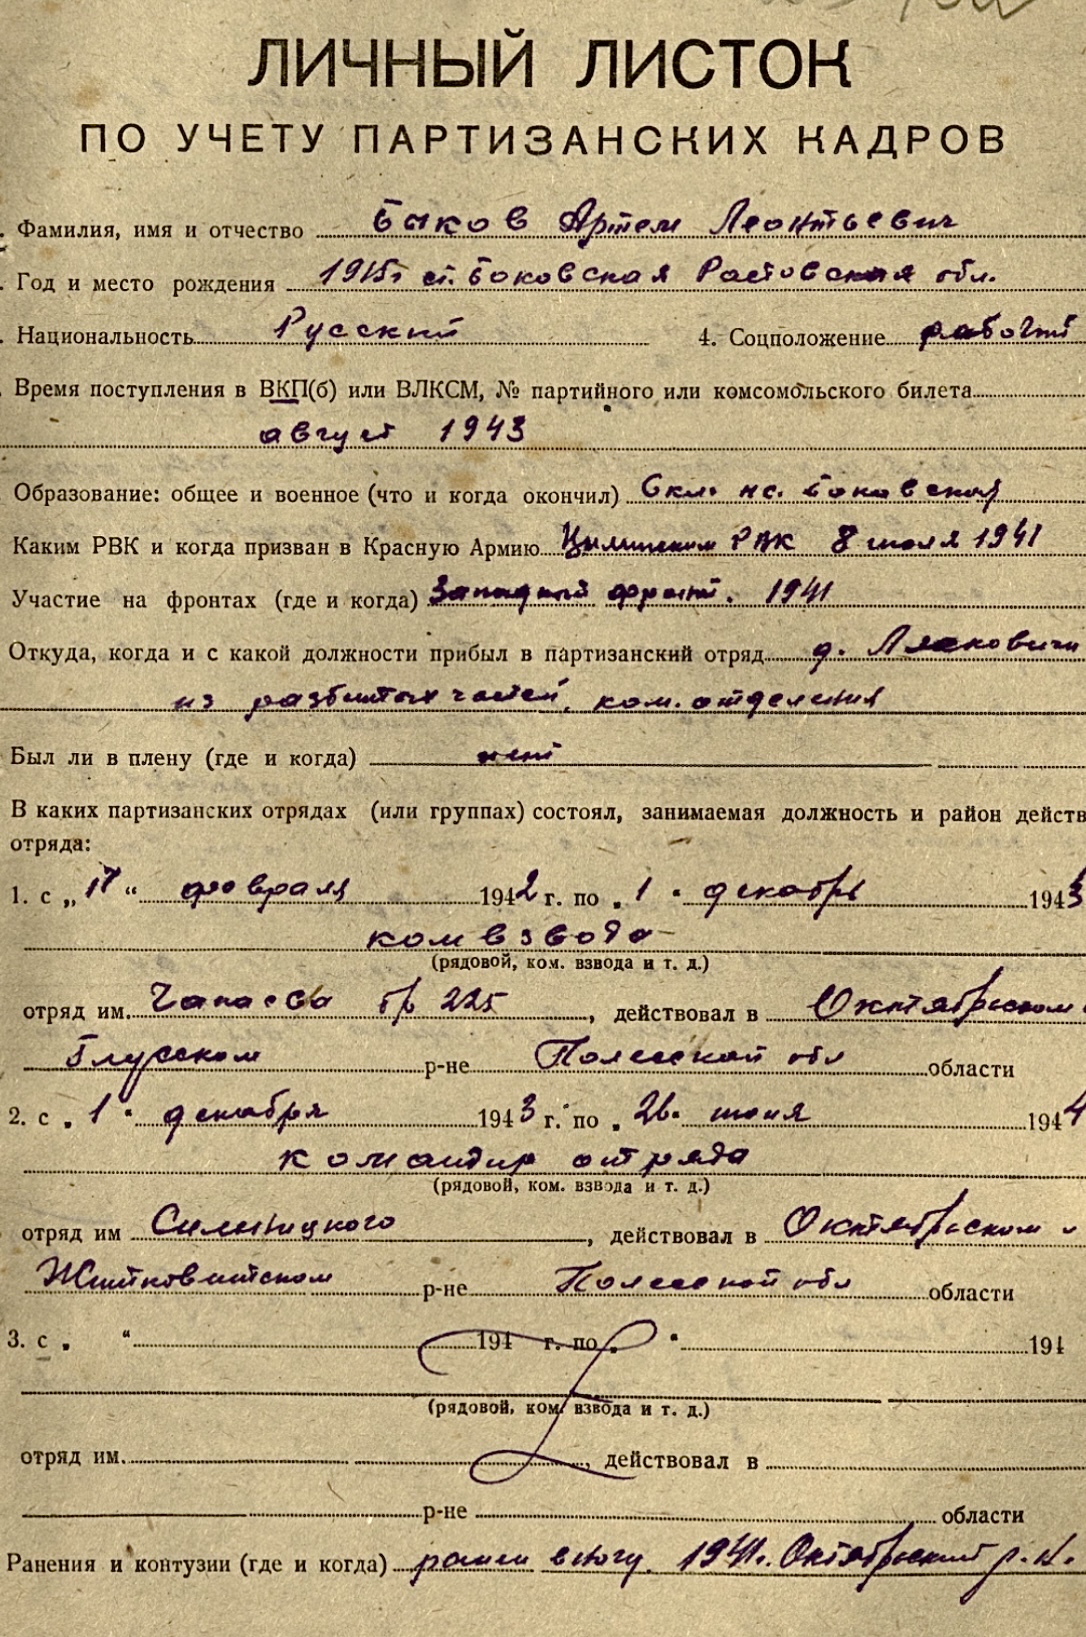 ЛИЧНЫЙ ЛИСТОК
ПО УЧЕТУ ПАРТИЗАНСКИХ КАДРОВ
Фамилия, имя и отчество Быков Артем Леонтьевич
Год и место рождения 1915г ст. Боковская Ростовская обл.
Национальность Русский 4. Соцположение рабочий
Время поступления в ВКП(б) или ВЛКСМ, № партийного или комсомольского билета
август 1943
Образование: общее и военное (что и когда окончил) 6 кл. нс. Боковская
Каким РВК и когда призван в Красную Армию РВК 8 июля 1941
Участие на фронтах (где и когда) Западный фронт. 1941
Откуда, когда и с какой должности прибыл в партизанский отряд д. Ляховичи
из разбитых частей, ком. отделения
Был ли в плену (где и когда) нет
В каких партизанских отрядах (или группах) состоял, занимаемая должность и район действ
отряда:
1. с „17“ февраля 1942 г. по „1“ декабрь 1943
ком взвода
(рядовой, ком. взвода и т. д.)
отряд им. Чапаева бр 225, действовал в Октябрьском
Глусском р-не Полесской обл области
2. с „1“ декабря 1943 г. по „26“ июня 1944
командир отряда
(рядовой, ком. взвода и т. д.)
отряд им Сильницкого, действовал в Октябрьском и
Житковитском р-не Полесской обл области
3. с „ “ 194 г. по „ “ 194
(рядовой, ком. взвода и т. д.)
отряд им. , действовал в
р-не области
Ранения и контузии (где и когда) ранен в ногу 1941г. Октябрьский р. н.